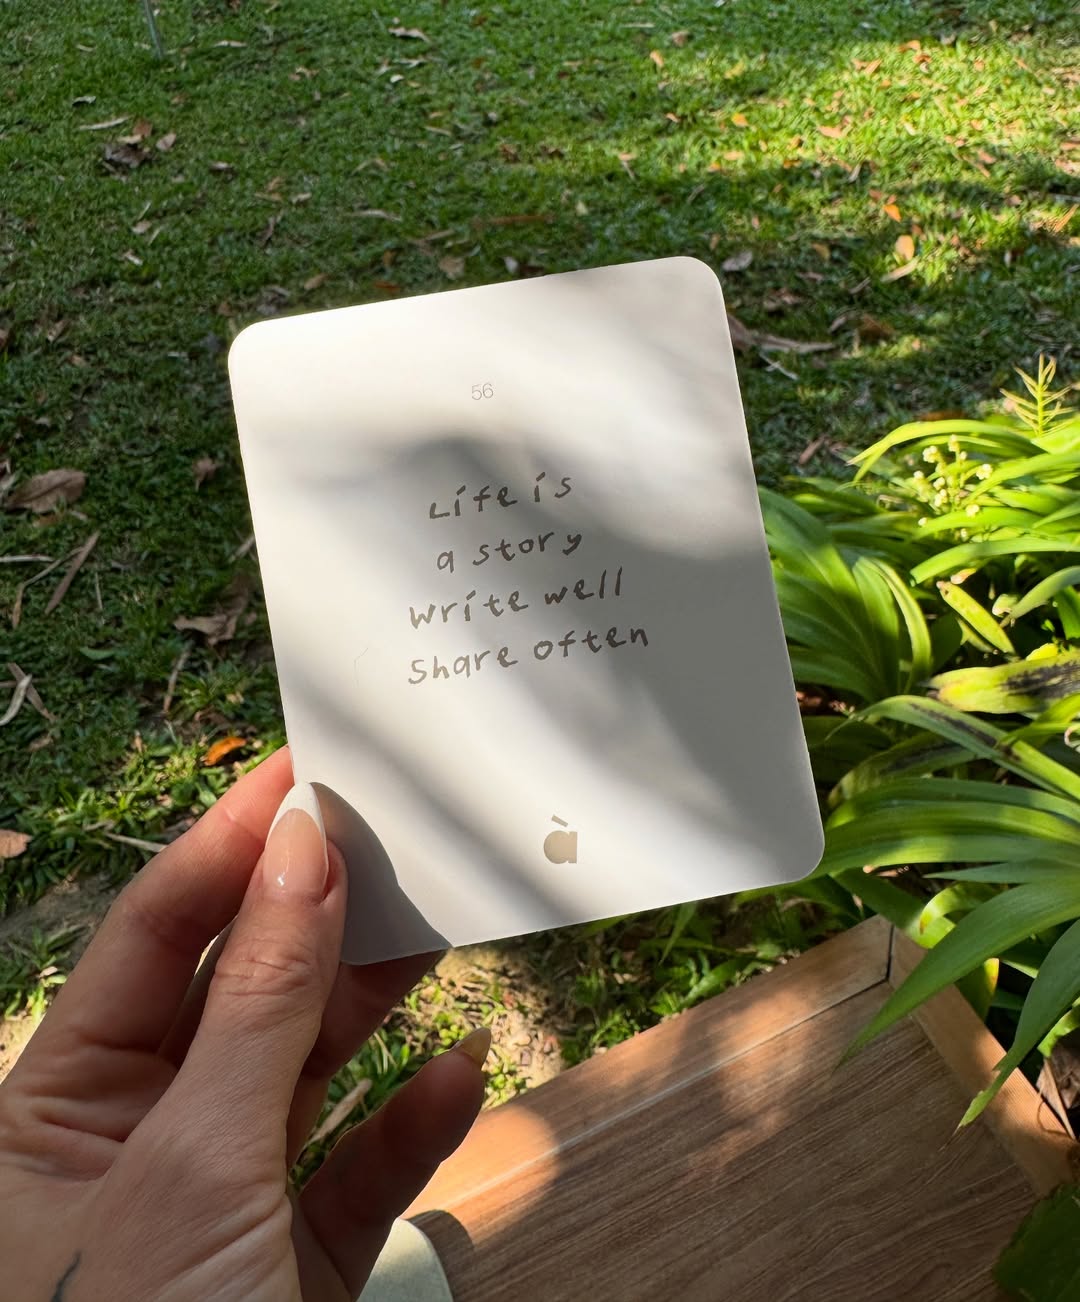 56
Life is
a story
write well
Share often
à